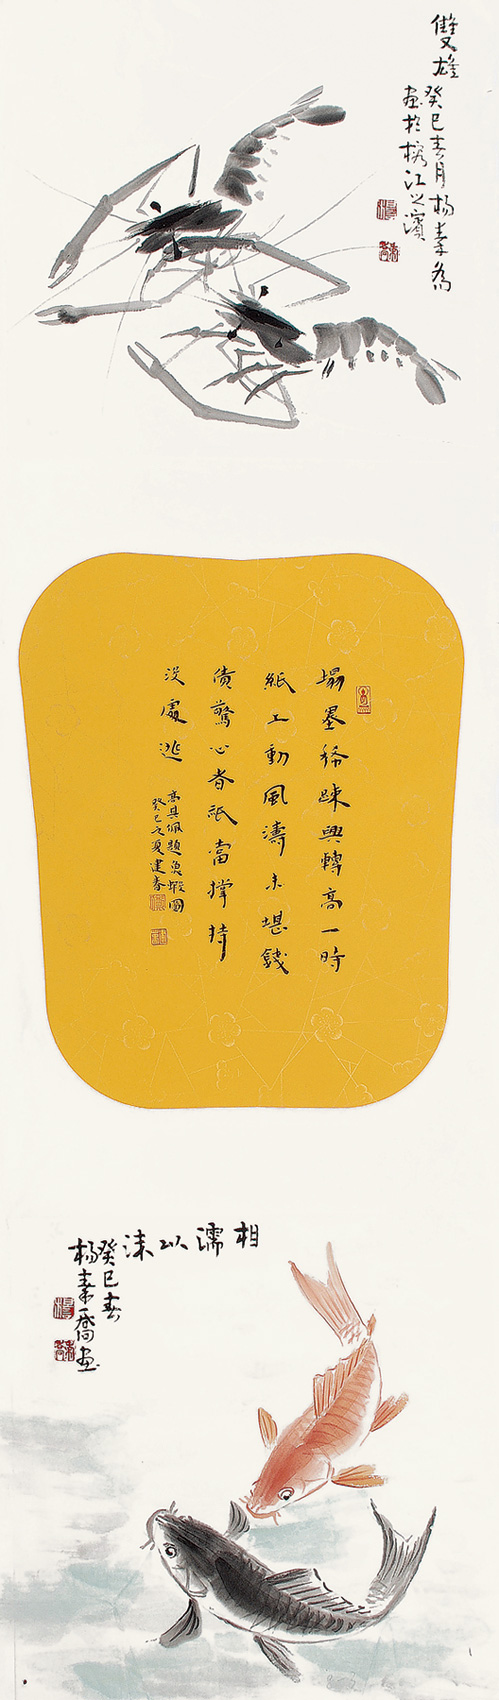 雙雄
癸巳春月楊素喬
畫於榕江之濱
塌墨稀踈興轉高一時
紙上動風濤未堪錢
債驚心者紙當撐持
沒處逃
高其佩題魚蝦圖
癸巳之夏建春
相濡以沫
癸巳春
楊素喬畫